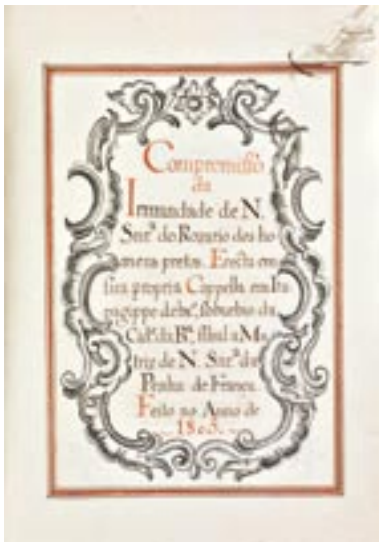 Compromisso
da
Irmandade de N.
Snr.ª do Rozario dos ho-
mens pretos. Erecta em
sua propria Cappella em Ita
pagippe debx.º, Subburbio da
Cid.ᵉ da B.ª, filial a Ma
triz de N. Snr.ª da
Penha de França.
Feito no Anno de